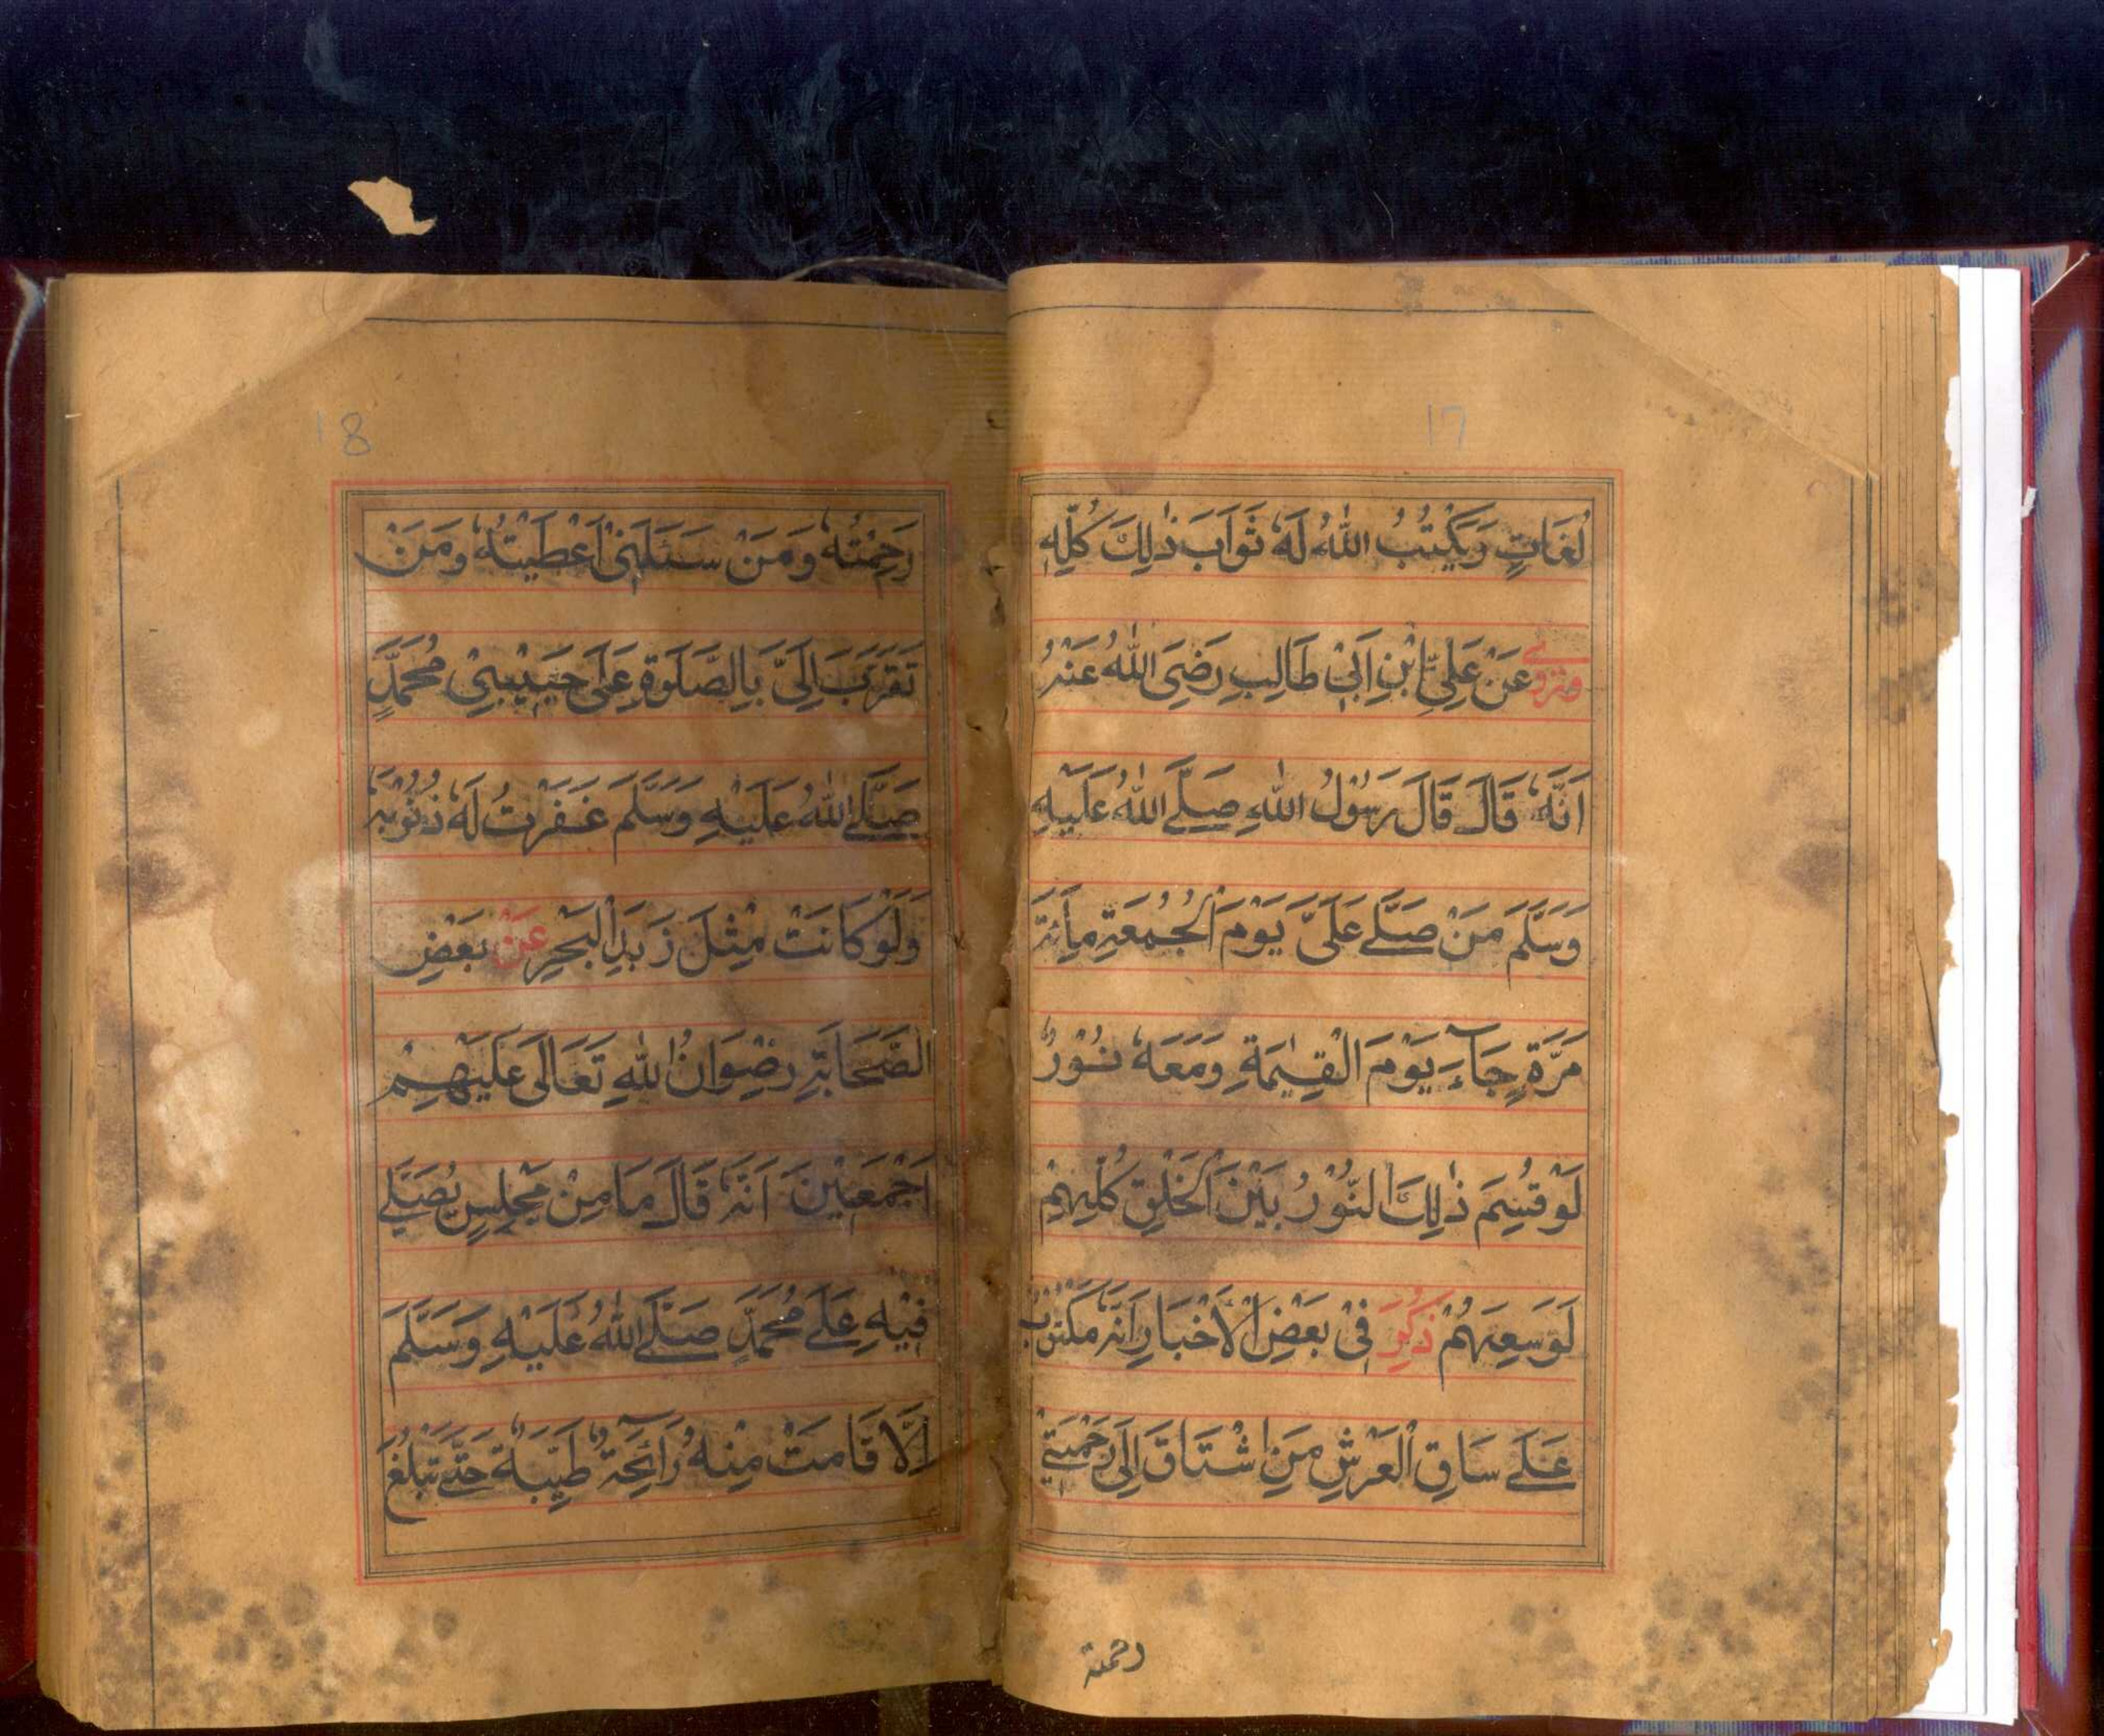 17
لُغَاتٍ وَيَكْتُبُ اللّٰهُ لَهٗ ثَوَابَ ذٰلِكَ كُلِّهٖ
وَرُوِيَ عَنْ عَلِيِّ ابْنِ اَبِيْ طَالِبٍ رَضِيَ اللّٰهُ عَنْهُ
اَنَّهٗ قَالَ قَالَ رَسُوْلُ اللّٰهِ صَلَّے اللّٰهُ عَلَيْهِ
وَسَلَّمَ مَنْ صَلّٰے عَلَىَّ يَوْمَ الْجُمُعَةِ مِاَئَةَ
مَرَّةٍ جَآءَ يَوْمَ الْقِيٰمَةِ وَمَعَهٗ نُوْرٌ
لَوْ قُسِمَ ذٰلِكَ النُّوْرُ بَيْنَ الْخَلْقِ كُلِّهِمْ
لَوَسِعَهُمْ ذُكِرَ فِيْ بَعْضِ الْاَخْبَارِ اَنَّهٗ مَكْتُوْبٌ
عَلَے سَاقِ الْعَرْشِ مَنِ اشْتَاقَ اِلٰى رَحْمَتِيْ
رحمته
18
رَحِمْتُهٗ وَمَنْ سَئَلَنِيْ اَعْطَيْتُهٗ وَمَنْ
تَقَرَّبَ اِلَىَّ بِالصَّلٰوةِ عَلٰى حَبِيْبِيْ مُحَمَّدٍ
صَلَّے اللّٰهُ عَلَيْهِ وَسَلَّمَ غَفَرْتُ لَهٗ ذُنُوْبَهٗ
وَلَوْ كَانَتْ مِثْلَ زَبَدِ الْبَحْرِ عَنْ بَعْضِ
الصَّحَابَةِ رِضْوَانُ اللّٰهِ تَعَالٰى عَلَيْهِمْ
اَجْمَعِيْنَ اَنَّهٗ قَالَ مَا مِنْ مَجْلِسٍ يُصَلّٰے
فِيْهِ عَلٰے مُحَمَّدٍ صَلَّے اللّٰهُ عَلَيْهِ وَسَلَّمَ
اِلَّا قَامَتْ مِنْهُ رَآئِحَةٌ طَيِّبَةٌ حَتّٰے تَبْلُغَ